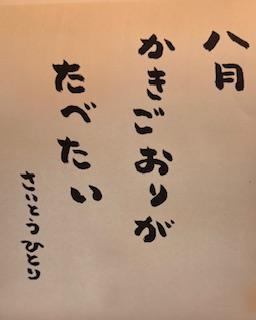 八月
かきごおりが
たべたい
さいとうひとり